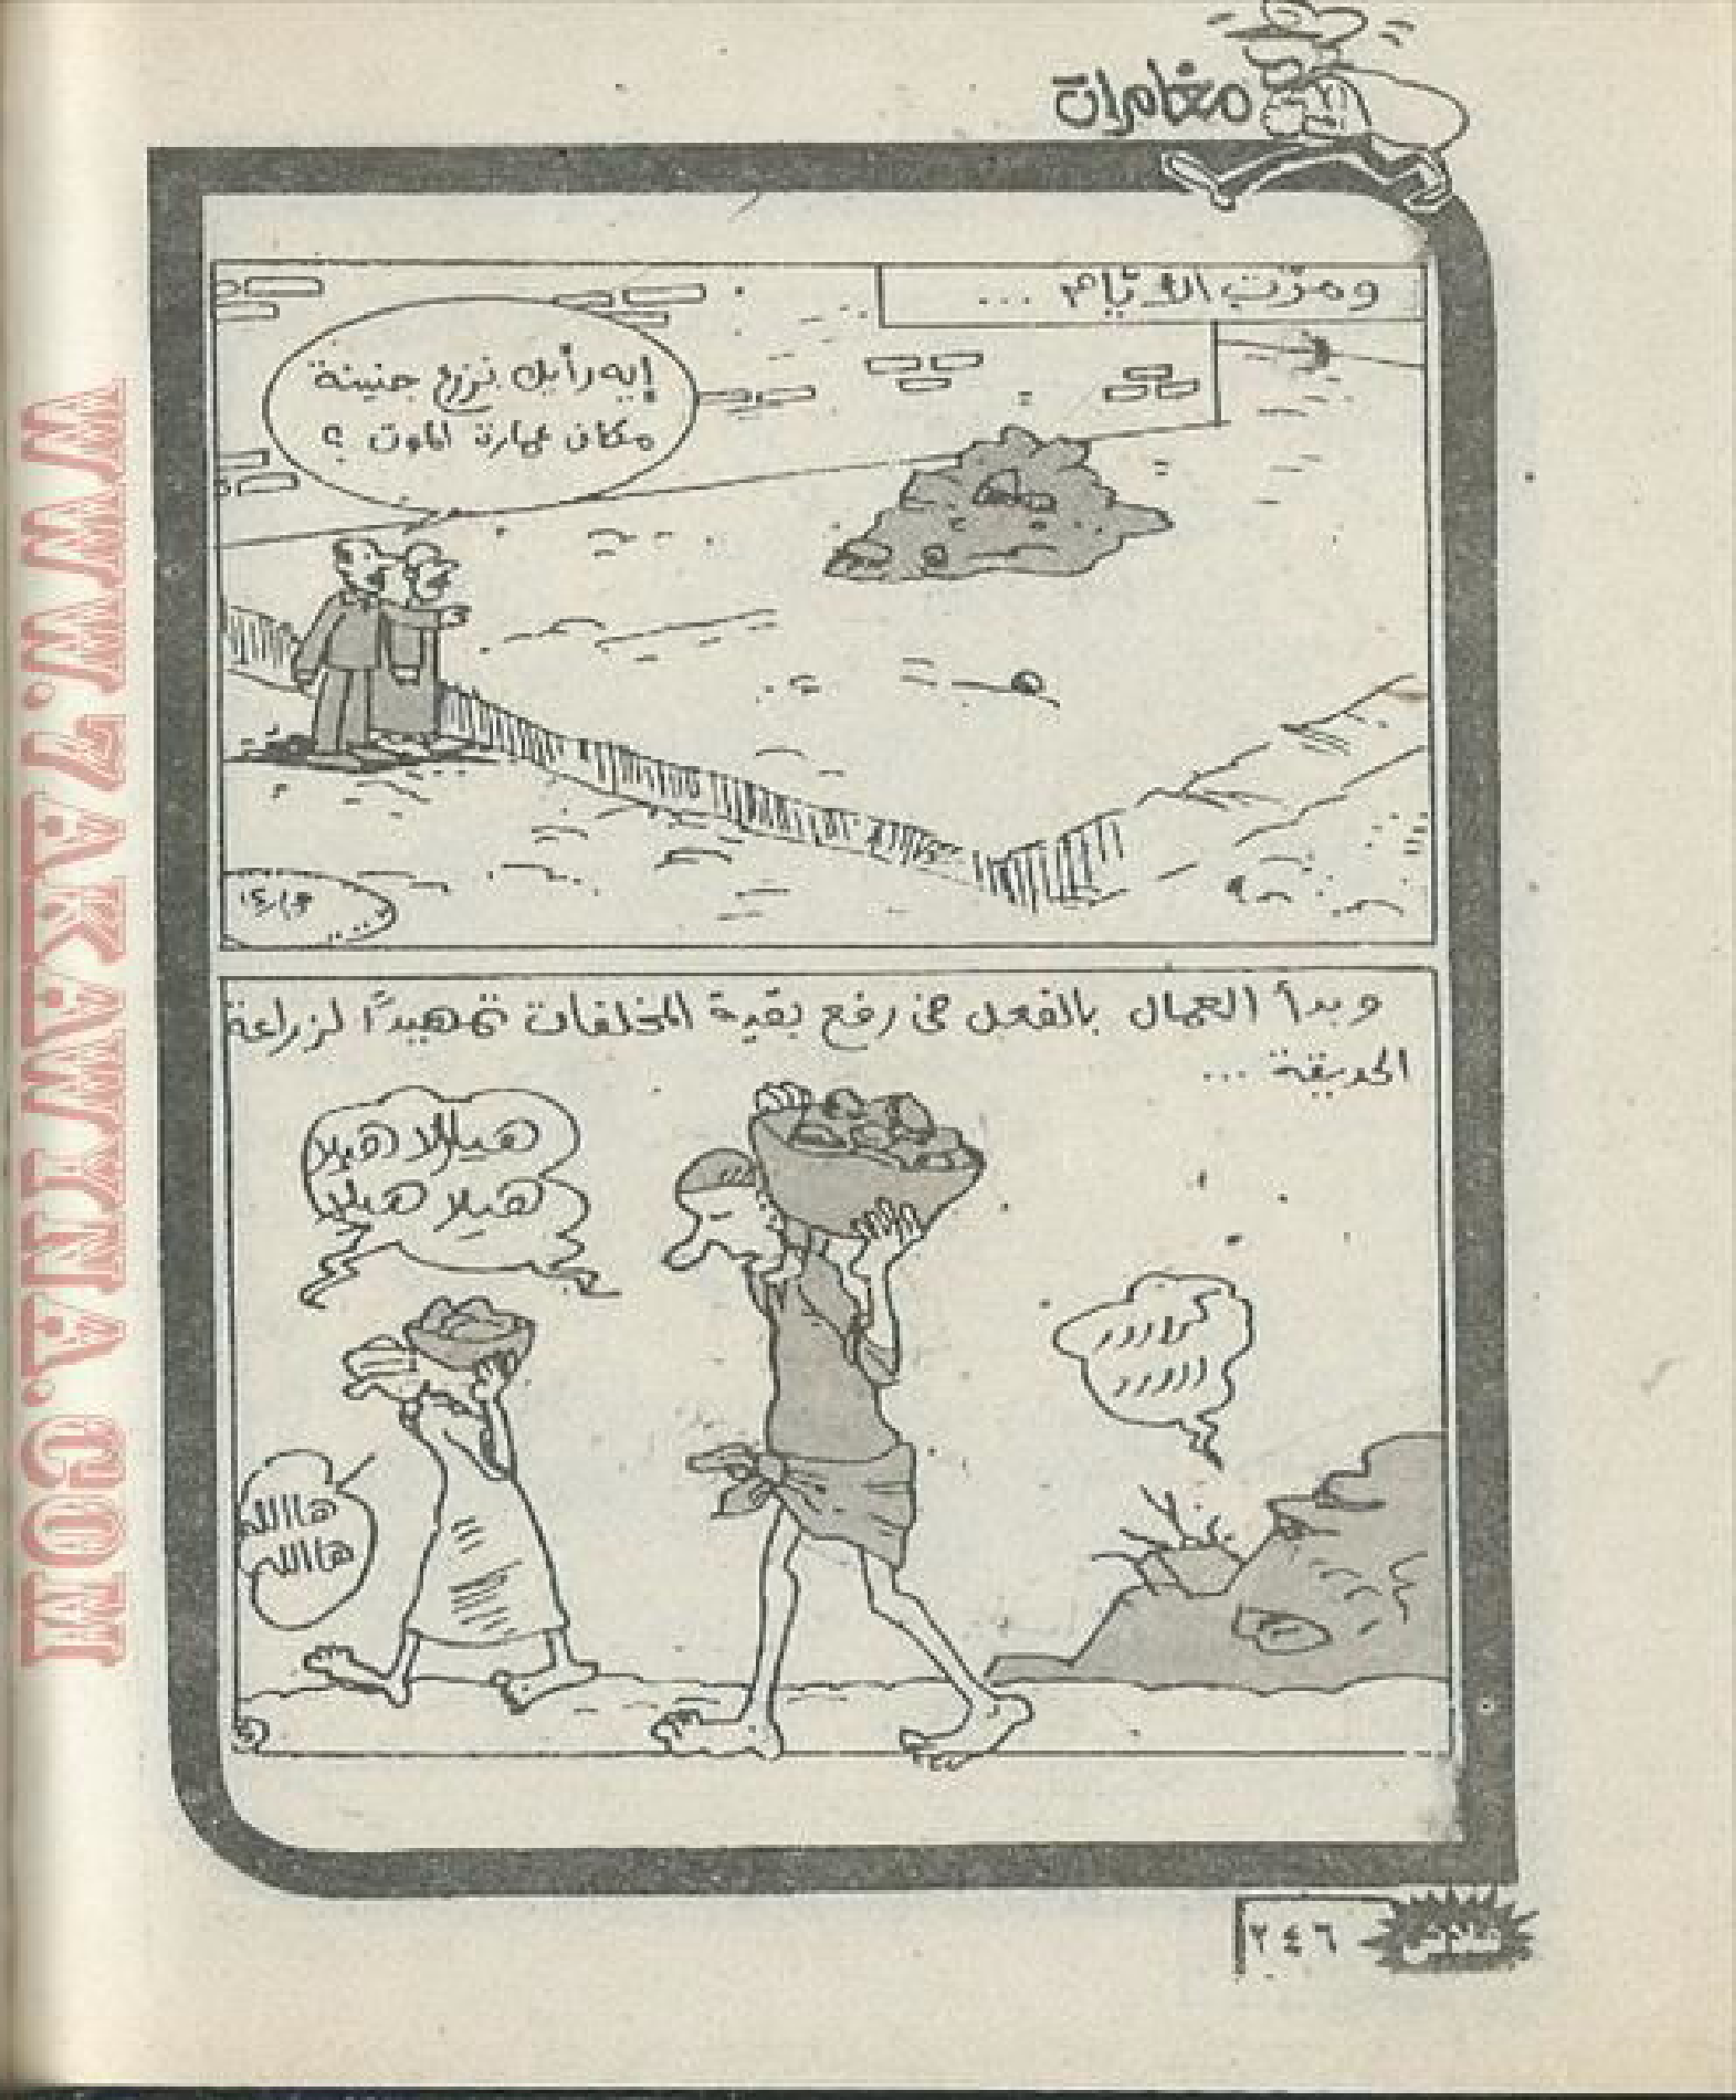 مغامرات
ومرّت الأيّام ...
إيه رأيك نزرع جنينة
مكان عمارة الموت ؟
وبدأ العمال بالفعل فى رفع بقية المخلفات تمهيداً لزراعة
الحديقة ...
هيلا هيلا
هيلا هيلا
هاالله
هاالله
فلاش
٢٤٦
WWW.7AKAWITNA.COM